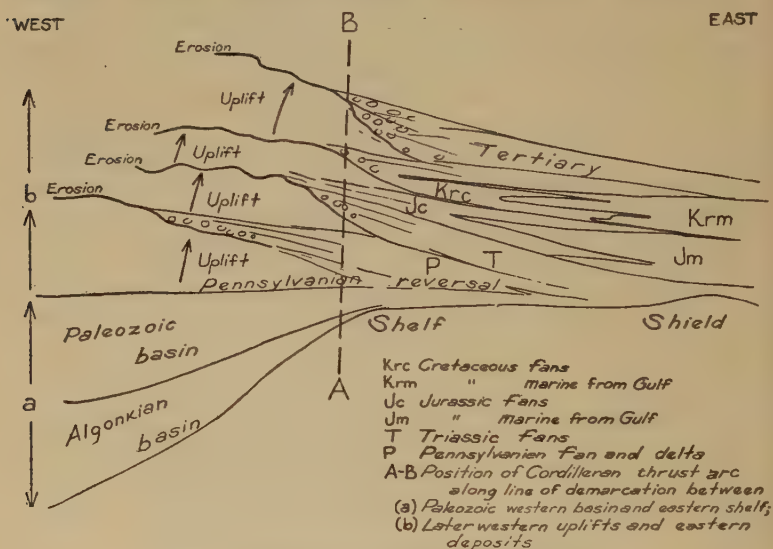 WEST
B
EAST
Erosion
Uplift
Erosion
Uplift
Tertiary
Erosion
b
Erosion
Uplift
Krc
Jc
Krm
Uplift
P
T
Jm
Pennsylvanian reversal
Paleozoic
basin
Shelf
Shield
a
Algonkian
basin
A
Krc Cretaceous fans
Krm " marine from Gulf
Jc Jurassic Fans
Jm " marine from Gulf
T Triassic Fans
P Pennsylvanian Fan and delta
A-B Position of Cordilleran thrust arc
along line of demarcation between
(a) Paleozoic western basin and eastern shelf;
(b) Later western uplifts and eastern
deposits